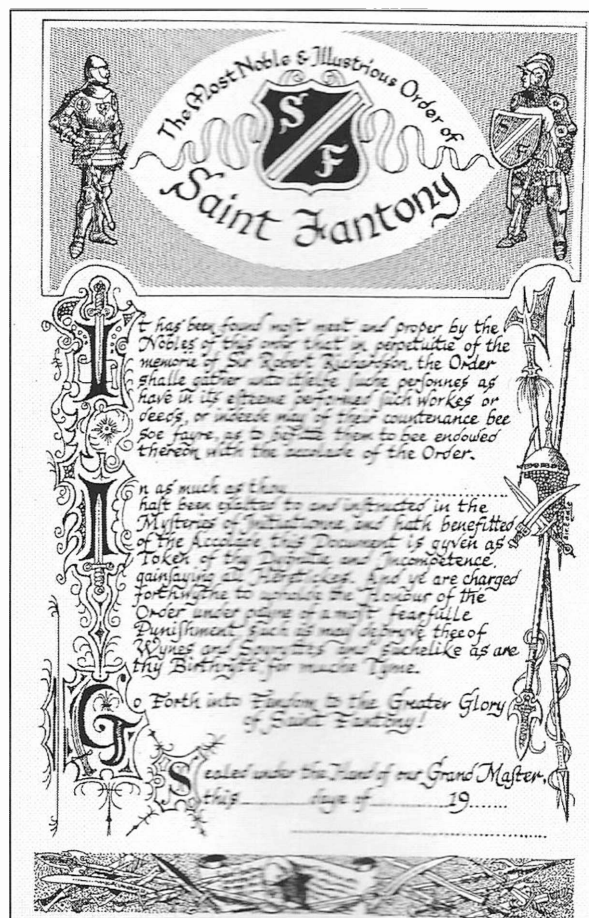 The Most Noble & Illustrious Order of
S
F
Saint Fantony
S
F
It has been found most meet and proper by the
Nobles of this order that in perpetuitie of the
memorie of Sir Robert Richardson, the Order
shalle gather unto itselfe suche personnes as
have in its esteeme performed such workes or
deeds, or indeede may of their countenance bee
soe fayre, as to them to bee endowed
thereon with the accolade of the Order.
In as much as thou
hast been exalted to and instructed in the
Mysteries of and hath benefitted
of the Accolade this Document is gyven as
Token of thy and Incompetence,
gainsaying all Heretickes. And ye are charged
forthwythe to upholde the Honour of the
Order under payne of a most fearfulle
Punishment such as may depryve thee of
Wynes and Spyryttes and suchelike as are
thy Birthryte for muche Tyme.
Go Forth into Fandom to the Greater Glory
of Saint Fantony!
Sealed under the Hand of our Grand Master,
this daye of 19